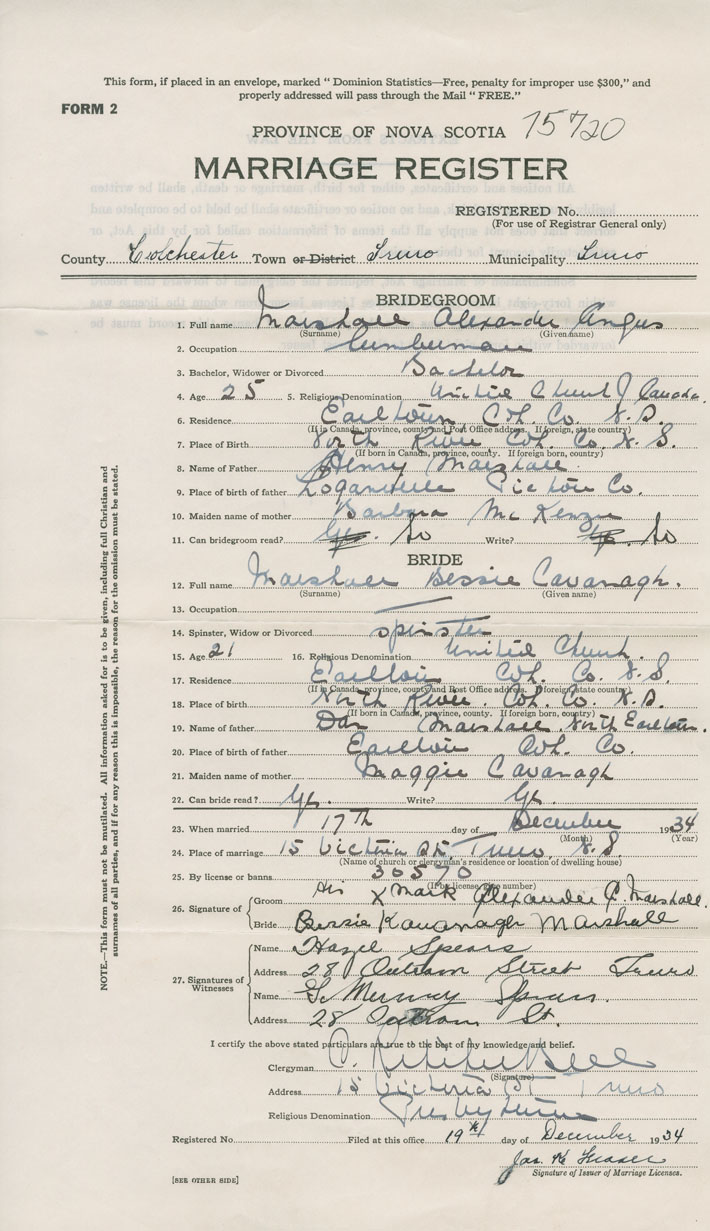 This form, if placed in an envelope, marked " Dominion Statistics—Free, penalty for improper use $300," and
properly addressed will pass through the Mail " FREE."
FORM 2
PROVINCE OF NOVA SCOTIA 15720
MARRIAGE REGISTER
REGISTERED No.
(For use of Registrar General only)
County Colchester Town or District Truro Municipality Truro
BRIDEGROOM
1. Full name Marshall Alexander Angus
(Surname) (Given name)
2. Occupation Lumberman
3. Bachelor, Widower or Divorced Bachelor
4. Age 25 5. Religious Denomination United Church of Canada.
6. Residence Earltown Col. Co. N. S.
(If in Canada, province, county and Post Office address. If foreign, state country)
7. Place of Birth North River Col. Co. N. S.
(If born in Canada, province, county. If foreign born, country)
8. Name of Father Henry Marshall
9. Place of birth of father Loganville Pictou Co.
10. Maiden name of mother Barbara McKenzie
11. Can bridegroom read? No Write? No
BRIDE
12. Full name Marshall Bessie Cavanagh.
(Surname) (Given name)
13. Occupation —
14. Spinster, Widow or Divorced spinster
15. Age 21 16. Religious Denomination United Church.
17. Residence Earltown Col. Co. N. S.
(If in Canada, province, county and Post Office address. If foreign state country)
18. Place of birth North River. Col. Co. N. S.
(If born in Canada, province, county. If foreign born, country)
19. Name of father Dan Marshall North Earltown.
20. Place of birth of father Earltown Col. Co.
21. Maiden name of mother Maggie Cavanagh
22. Can bride read? Yes. Write? Yes.
23. When married 17th day of December 1934
(Month) (Year)
24. Place of marriage 15 Victoria St. Truro, N. S
(Name of church or clergyman's residence or location of dwelling house)
25. By license or banns 30570
(If by license, give number)
26. Signature of Groom His X Mark Alexander A. Marshall.
Bride Bessie Kavanagh Marshall
27. Signatures of Witnesses
Name Hazel Spears
Address 28 Outram Street Truro
Name G. Murray Spears.
Address 28 Outram St.
I certify the above stated particulars are true to the best of my knowledge and belief.
Clergyman
(Signature)
Address 15 Victoria St Truro
Religious Denomination Presbyterian
Registered No. Filed at this office 19th day of December 1934
Jas. Fraser
Signature of Issuer of Marriage Licenses.
[SEE OTHER SIDE]
NOTE.—This form must not be mutilated. All information asked for is to be given, including full Christian and
surnames of all parties, and if for any reason this is impossible, the reason for the omission must be stated.